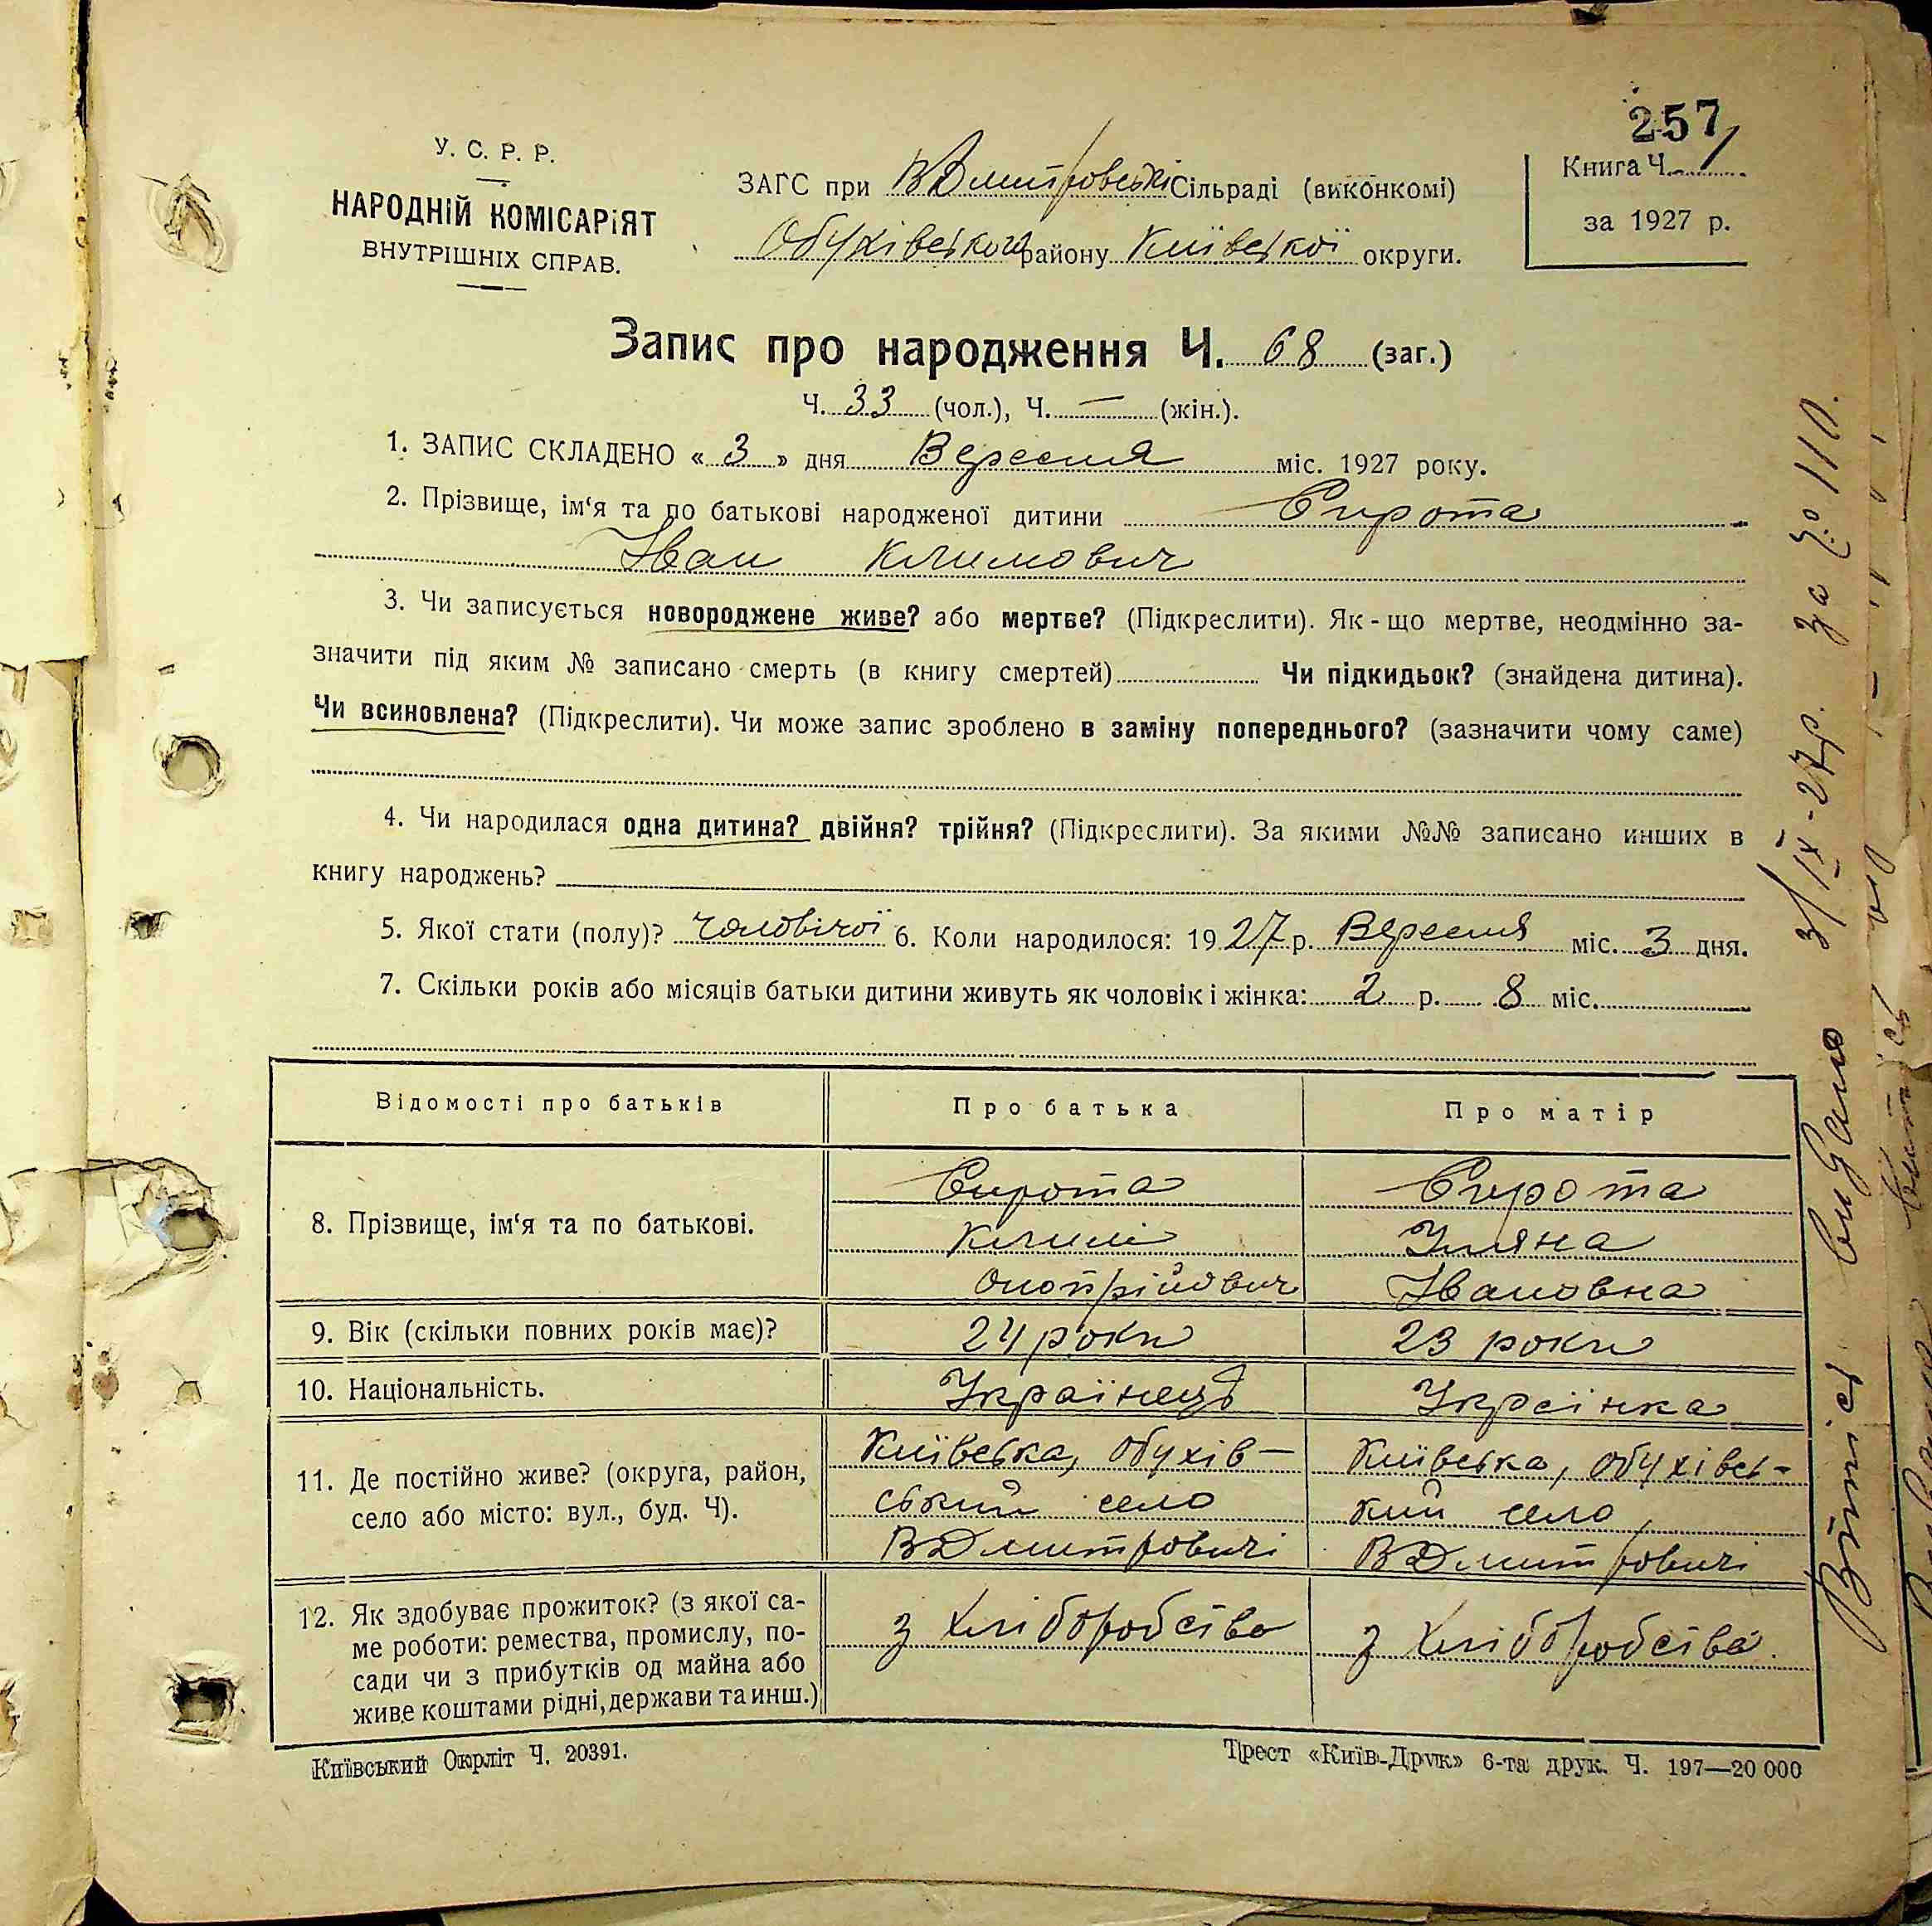 257
У. С. Р. Р.
НАРОДНІЙ КОМІСАРІЯТ
ВНУТРІШНІХ СПРАВ.
ЗАГС при ВДмитровській Сільраді (виконкомі)
Обухівського району Київської округи.
Книга Ч. 1
за 1927 р.
Запис про народження Ч. 68 (заг.)
Ч. 33 (чол.), Ч. — (жін.).
1. ЗАПИС СКЛАДЕНО « 3 » дня Вересня міс. 1927 року.
2. Прізвище, ім‘я та по батькові народженої дитини Сирота
Іван Климович
3. Чи записується новороджене живе? або мертве? (Підкреслити). Як - що мертве, неодмінно за-
значити під яким № записано смерть (в книгу смертей) Чи підкидьок? (знайдена дитина).
Чи всиновлена? (Підкреслити). Чи може запис зроблено в заміну попереднього? (зазначити чому саме)
4. Чи народилася одна дитина? двійня? трійня? (Підкреслити). За якими №№ записано инших в
книгу народжень?
5. Якої стати (полу)? чоловічої 6. Коли народилося: 1927 р. Вересня міс. 3 дня.
7. Скільки років або місяців батьки дитини живуть як чоловік і жінка: 2 р. 8 міс.
Відомості про батьків Про батька Про матір
8. Прізвище, ім‘я та по батькові.
Сирота
Клим
Онопрійович
Сирота
Уляна
Івановна
9. Вік (скільки повних років має)? 24 роки 23 роки
10. Національність. Українець Українка
11. Де постійно живе? (округа, район,
село або місто: вул., буд. Ч).
Київська, Обухів-
ський село
ВДмитровичі
Київська, Обухівсь-
кий село
ВДмитровичі
12. Як здобуває прожиток? (з якої са-
ме роботи: ремества, промислу, по-
сади чи з прибутків од майна або
живе коштами рідні, держави та инш.)
з хліборобства
з хліборобства
Київський Окрліт Ч. 20391.
Трест «Київ-Друк» 6-та друк. Ч. 197—20 000
Витяг видано 3/IX-27р. за № 110.